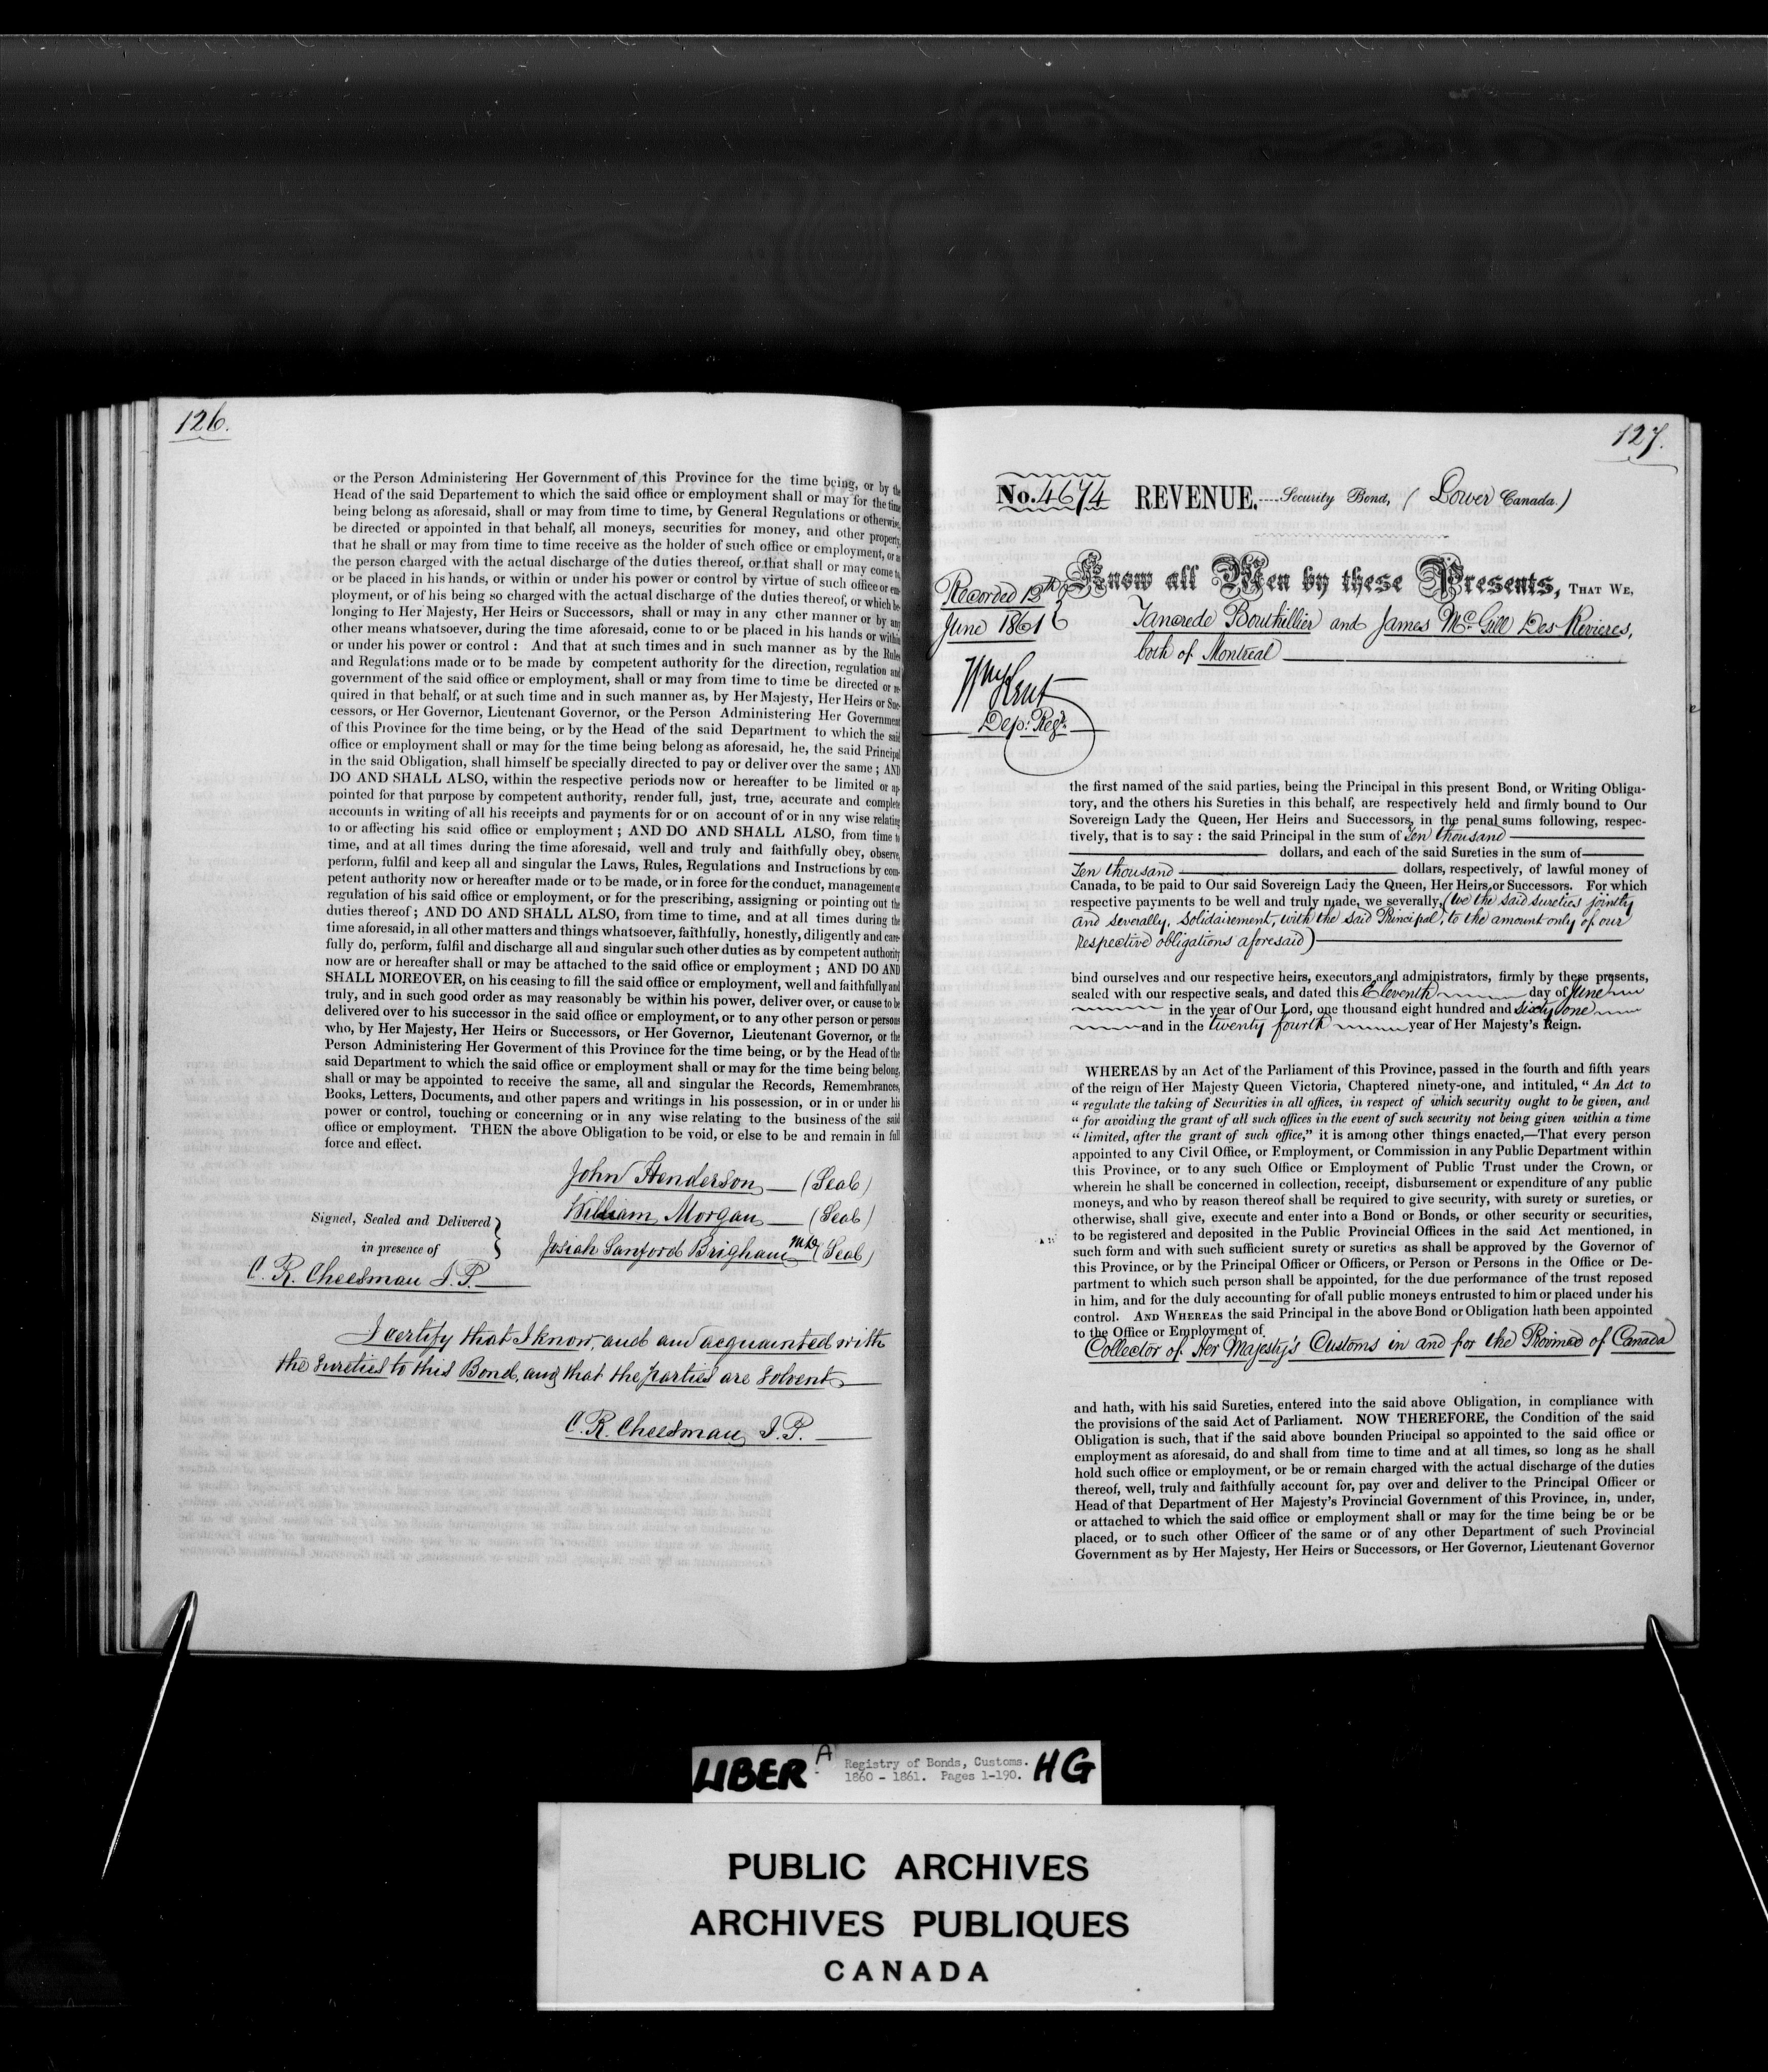 126.
or the Person Administering Her Government of this Province for the time being, or by the
Head of the said Departement to which the said office or employment shall or may for the time
being belong as aforesaid, shall or may from time to time, by General Regulations or otherwise,
be directed or appointed in that behalf, all moneys, securities for money, and other property,
that he shall or may from time to time receive as the holder of such office or employment, or as
the person charged with the actual discharge of the duties thereof, or that shall or may come to,
or be placed in his hands, or within or under his power or control by virtue of such office or em-
ployment, or of his being so charged with the actual discharge of the duties thereof, or which be-
longing to Her Majesty, Her Heirs or Successors, shall or may in any other manner or by any
other means whatsoever, during the time aforesaid, come to or be placed in his hands or within
or under his power or control : And that at such times and in such manner as by the Rules
and Regulations made or to be made by competent authority for the direction, regulation and
government of the said office or employment, shall or may from time to time be directed or re-
quired in that behalf, or at such time and in such manner as, by Her Majesty, Her Heirs or Suc-
cessors, or Her Governor, Lieutenant Governor, or the Person Administering Her Government
of this Province for the time being, or by the Head of the said Department to which the said
office or employment shall or may for the time being belong as aforesaid, he, the said Principal
in the said Obligation, shall himself be specially directed to pay or deliver over the same ; AND
DO AND SHALL ALSO, within the respective periods now or hereafter to be limited or ap-
pointed for that purpose by competent authority, render full, just, true, accurate and complete
accounts in writing of all his receipts and payments for or on account of or in any wise relating
to or affecting his said office or employment ; AND DO AND SHALL ALSO, from time to
time, and at all times during the time aforesaid, well and truly and faithfully obey, observe,
perform, fulfil and keep all and singular the Laws, Rules, Regulations and Instructions by com-
petent authority now or hereafter made or to be made, or in force for the conduct, management or
regulation of his said office or employment, or for the prescribing, assigning or pointing out the
duties thereof ; AND DO AND SHALL ALSO, from time to time, and at all times during the
time aforesaid, in all other matters and things whatsoever, faithfully, honestly, diligently and care-
fully do, perform, fulfil and discharge all and singular such other duties as by competent authority
now are or hereafter shall or may be attached to the said office or employment ; AND DO AND
SHALL MOREOVER, on his ceasing to fill the said office or employment, well and faithfully and
truly, and in such good order as may reasonably be within his power, deliver over, or cause to be
delivered over to his successor in the said office or employment, or to any other person or persons
who, by Her Majesty, Her Heirs or Successors, or Her Governor, Lieutenant Governor, or the
Person Administering Her Goverment of this Province for the time being, or by the Head of the
said Department to which the said office or employment shall or may for the time being belong,
shall or may be appointed to receive the same, all and singular the Records, Remembrances,
Books, Letters, Documents, and other papers and writings in his possession, or in or under his
power or control, touching or concerning or in any wise relating to the business of the said
office or employment. THEN the above Obligation to be void, or else to be and remain in full
force and effect.
John Henderson (Seal)
William Morgan (Seal)
Signed, Sealed and Delivered
in presence of
Josiah Sanford Brigham MD (Seal)
C. R. Cheesman J. P.
I certify that I know, and am acquainted with
the Sureties to this Bond, and that the parties are Solvent
C. R. Cheesman J. P.
127.
No. 4674 REVENUE.----Security Bond, ( Lower Canada.)
Know all Men by these Presents, THAT WE,
Recorded 13th
June 1861
Tancrede Bouthillier and James Mc Gill Des Rivieres,
both of Montreal
Wm Kent
Dep: Regr.
the first named of the said parties, being the Principal in this present Bond, or Writing Obliga-
tory, and the others his Sureties in this behalf, are respectively held and firmly bound to Our
Sovereign Lady the Queen, Her Heirs and Successors, in the penal sums following, respec-
tively, that is to say : the said Principal in the sum of Ten thousand
dollars, and each of the said Sureties in the sum of
Ten thousand dollars, respectively, of lawful money of
Canada, to be paid to Our said Sovereign Lady the Queen, Her Heirs, or Successors. For which
respective payments to be well and truly made, we severally, (We the said Sureties jointly
and severally, Solidairement, with the said Principal, to the amount only of our
respective obligations aforesaid)
bind ourselves and our respective heirs, executors and administrators, firmly by these presents,
sealed with our respective seals, and dated this Eleventh day of June
in the year of Our Lord, one thousand eight hundred and Sixty one
and in the twenty fourth year of Her Majesty's Reign.
WHEREAS by an Act of the Parliament of this Province, passed in the fourth and fifth years
of the reign of Her Majesty Queen Victoria, Chaptered ninety-one, and intituled, " An Act to
" regulate the taking of Securities in all offices, in respect of which security ought to be given, and
" for avoiding the grant of all such offices in the event of such security not being given within a time
" limited, after the grant of such office," it is among other things enacted,—That every person
appointed to any Civil Office, or Employment, or Commission in any Public Department within
this Province, or to any such Office or Employment of Public Trust under the Crown, or
wherein he shall be concerned in collection, receipt, disbursement or expenditure of any public
moneys, and who by reason thereof shall be required to give security, with surety or sureties, or
otherwise, shall give, execute and enter into a Bond or Bonds, or other security or securities,
to be registered and deposited in the Public Provincial Offices in the said Act mentioned, in
such form and with such sufficient surety or sureties as shall be approved by the Governor of
this Province, or by the Principal Officer or Officers, or Person or Persons in the Office or De-
partment to which such person shall be appointed, for the due performance of the trust reposed
in him, and for the duly accounting for of all public moneys entrusted to him or placed under his
control. AND WHEREAS the said Principal in the above Bond or Obligation hath been appointed
to the Office or Employment of
Collector of Her Majesty's Customs in and for the Province of Canada
and hath, with his said Sureties, entered into the said above Obligation, in compliance with
the provisions of the said Act of Parliament. NOW THEREFORE, the Condition of the said
Obligation is such, that if the said above bounden Principal so appointed to the said office or
employment as aforesaid, do and shall from time to time and at all times, so long as he shall
hold such office or employment, or be or remain charged with the actual discharge of the duties
thereof, well, truly and faithfully account for, pay over and deliver to the Principal Officer or
Head of that Department of Her Majesty's Provincial Government of this Province, in, under,
or attached to which the said office or employment shall or may for the time being be or be
placed, or to such other Officer of the same or of any other Department of such Provincial
Government as by Her Majesty, Her Heirs or Successors, or Her Governor, Lieutenant Governor
LIBER A Registry of Bonds, Customs. HG
1860 - 1861. Pages 1-190.
PUBLIC ARCHIVES
ARCHIVES PUBLIQUES
CANADA